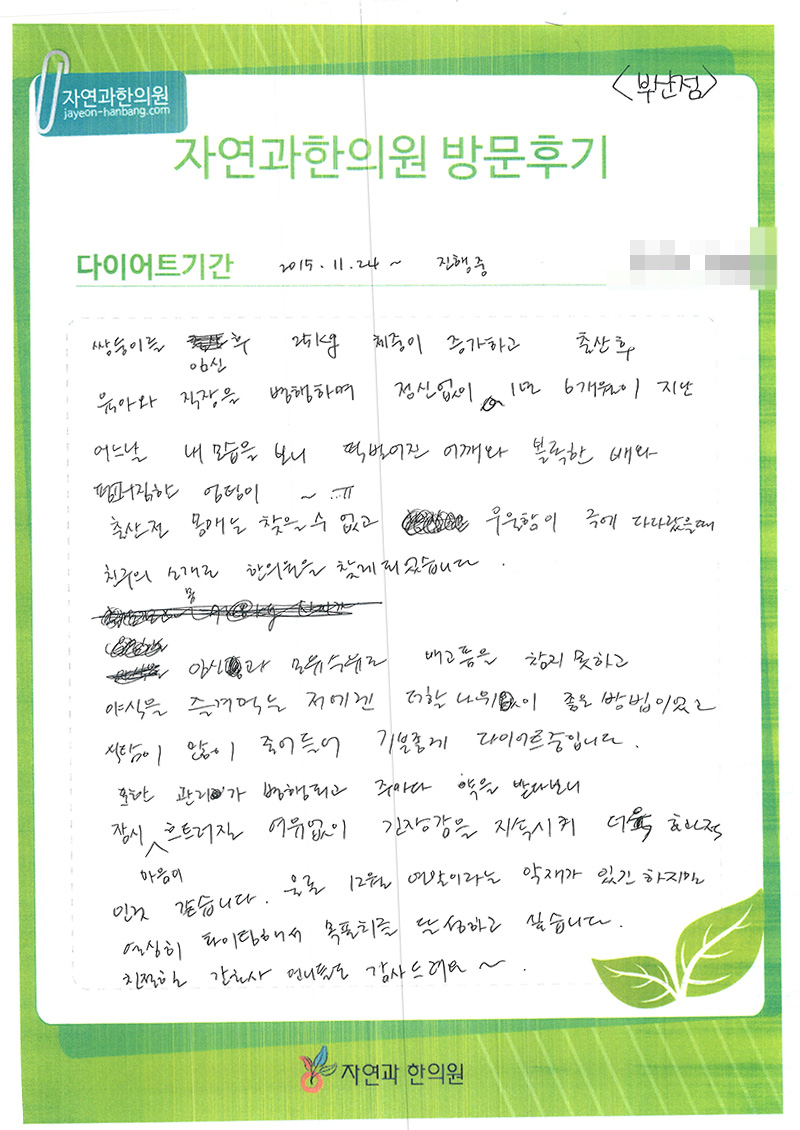 <부산점>
자연과한의원
jayeon-hanbang.com
자연과한의원 방문후기
다이어트기간 2015.11.24 ~ 진행중
쌍둥이를 임신 후 25kg 체중이 증가하고 출산후
육아와 직장을 병행하며 정신없이 1년 6개월이 지난
어느날 내 모습을 보니 떡벌어진 어깨와 볼록한 배와
펑퍼짐한 엉덩이 ~ ㅠ
출산전 몸매는 찾을 수 없고 우울함이 극에 다다랐을때
친구의 소개로 한의원을 찾게 되었습니다.
임신과 모유수유로 배고픔을 참지 못하고
야식을 즐겨먹는 저에겐 더할 나위없이 좋은 방법이었고
식탐이 많이 줄어들어 기분좋게 다이어트중입니다.
또한 관리가 병행되고 주마다 약을 받다보니
잠시 마음이 흐트러질 여유없이 긴장감을 지속시켜 더욱 효과적
인것 같습니다. 물론 12월 연말이라는 악재가 있긴 하지만
열심히 파이팅해서 목표치를 달성하고 싶습니다.
친절한 간호사 언니들도 감사드려요 ~.
자연과 한의원